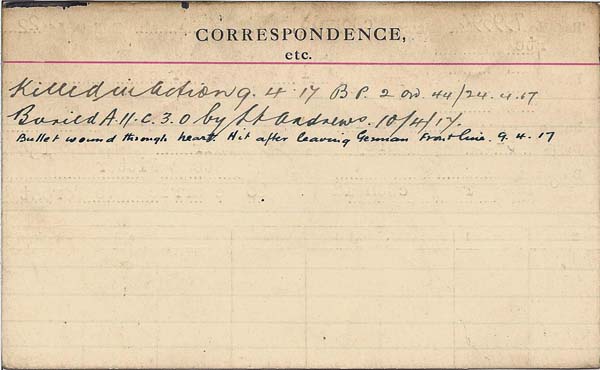 CORRESPONDENCE,
etc.
Killed in Action 9. 4. 17 B P. 2 OW. 44/24. 4. 17
Buried A.11.C.3.0 by Lt Andrews. 10/4/17.
Bullet wound through heart. Hit after leaving German Front line. 9. 4. 17